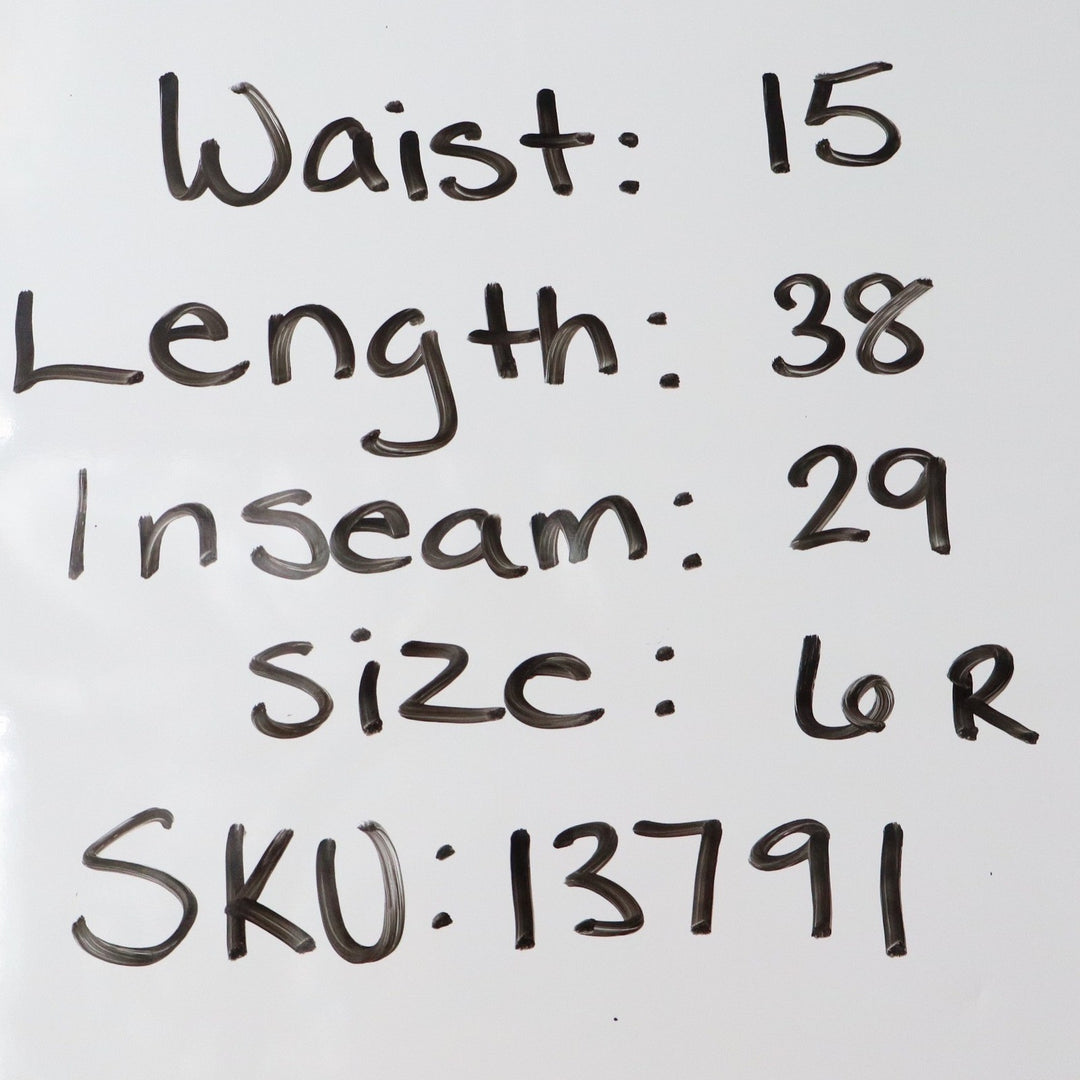 Waist: 15
Length: 38
Inseam: 29
Size: 6 R
SKU: 13791